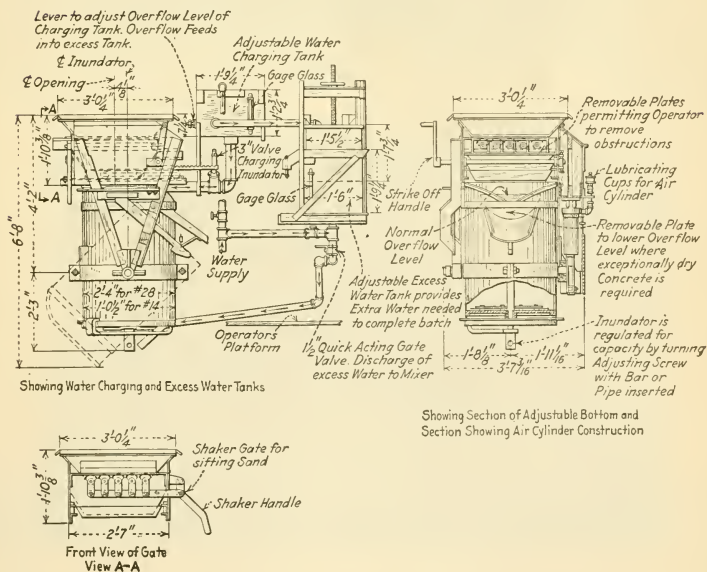 Lever to adjust Overflow Level of
Charging Tank. Overflow Feeds
into excess Tank.
℄ Inundator
℄ Opening
Adjustable Water
Charging Tank
Gage Glass
1'-9¼"
3'-0¼"
A
A
1'-10⅜"
4'-2"
6'-8"
2'-3"
3" Valve
Charging
Inundator
1'-5½"
Gage Glass
1'-6"
Water
Supply
2'-4" for #28
1'-0½" for #14
Operators
Platform
Adjustable Excess
Water Tank provides
Extra Water needed
to complete batch
1½" Quick Acting Gate
Valve. Discharge of
excess Water to Mixer
Showing Water Charging and Excess Water Tanks
3'-0¼"
Removable Plates
permitting Operator
to remove
obstructions
Lubricating
Cups for Air
Cylinder
Strike Off
Handle
Normal
Overflow
Level
Removable Plate
to lower Overflow
Level where
exceptionally dry
Concrete is
required
Inundator is
regulated for
capacity by turning
Adjusting Screw
with Bar or
Pipe inserted
1'-8⅛"
1'-11 1/16"
3'-7 3/16"
Showing Section of Adjustable Bottom and
Section Showing Air Cylinder Construction
3'-0¼"
1'-10⅜"
Shaker Gate for
sifting Sand
Shaker Handle
2'-7"
Front View of Gate
View A-A